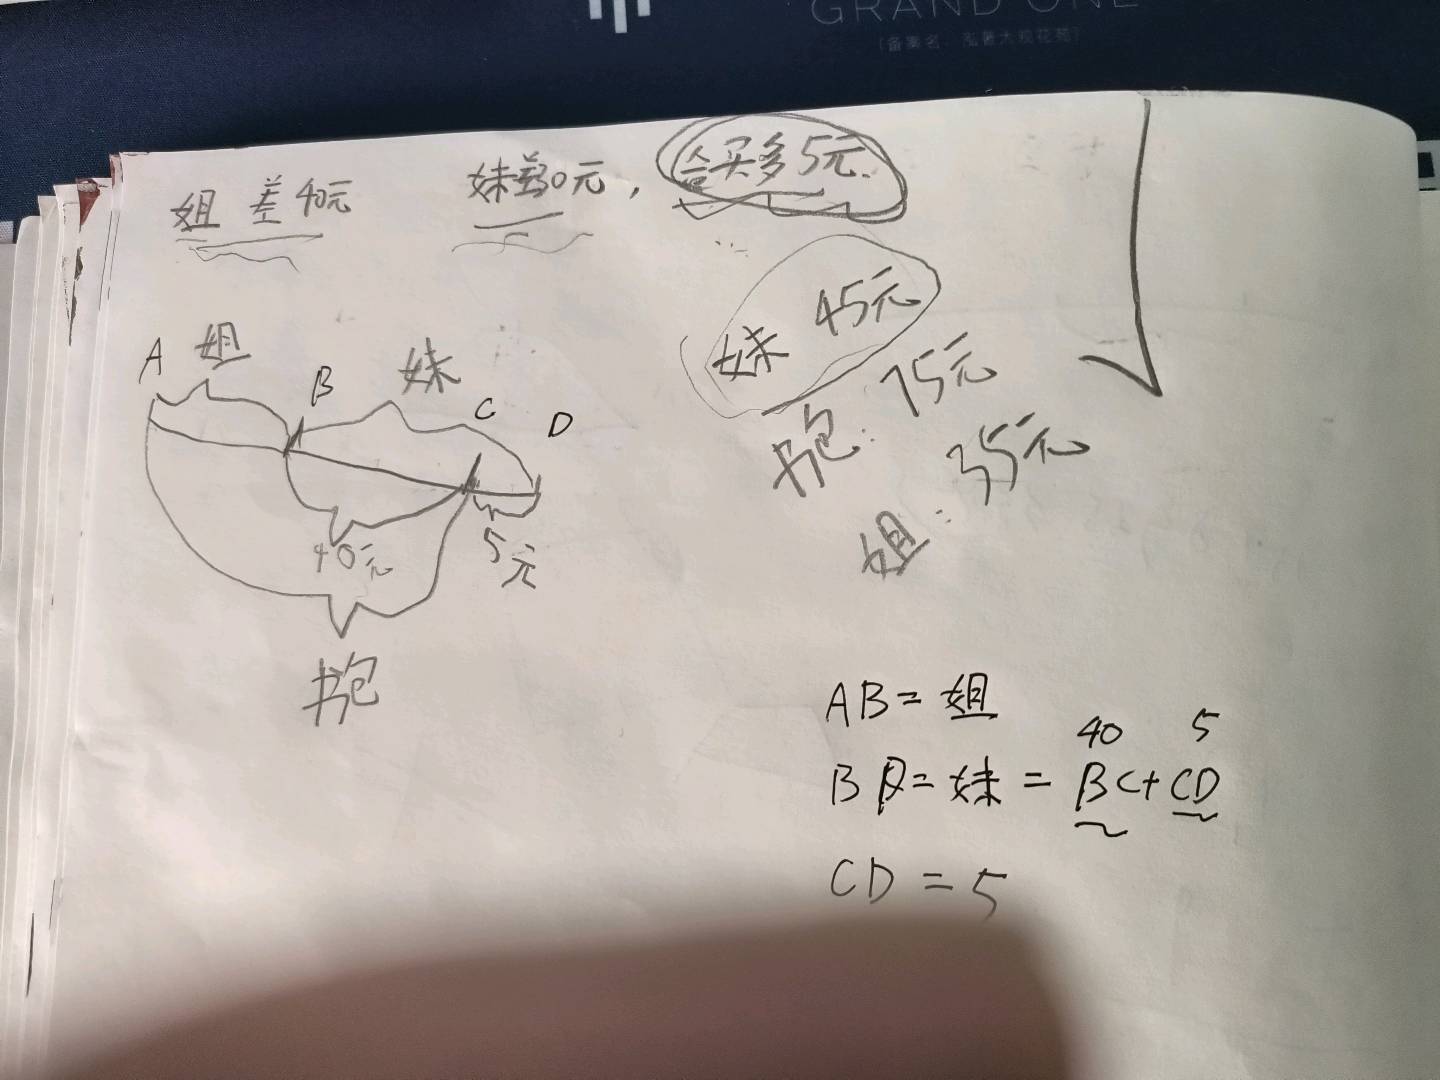 GRAND ONE
姐 差40元 妹差30元, 合买多5元.
妹 45元
书包: 75元
姐: 35元
A 姐 B 妹 C D
40元 5元
书包
AB=姐
40 5
BD=妹=BC+CD
CD=5